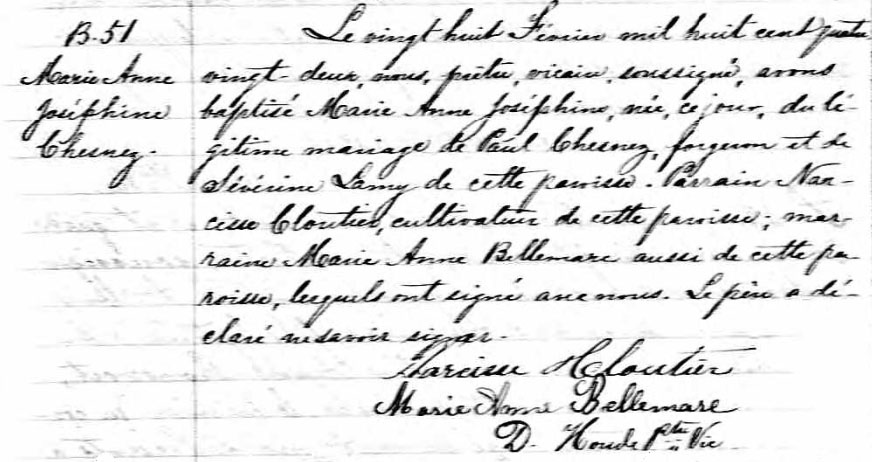 B-51
Marie Anne
Joséphine
Chesnez.
Le vingt huit Février mil huit cent quatre
vingt-deux, nous, prêtre, vicaire, soussigné, avons
baptisé Marie Anne Joséphine, née, ce jour, du lé-
gitime mariage de Paul Chesnez, forgeron et de
Sévérine Lamy de cette paroisse. Parrain Nar-
cisse Cloutier, cultivateur de cette paroisse; mar-
raine Marie Anne Bellemare aussi de cette pa-
roisse, lesquels ont signé avec nous. Le père a dé-
claré ne savoir signer.
Narcisse H Cloutier
Marie Anne Bellemare
D. Houde Ptre Vic